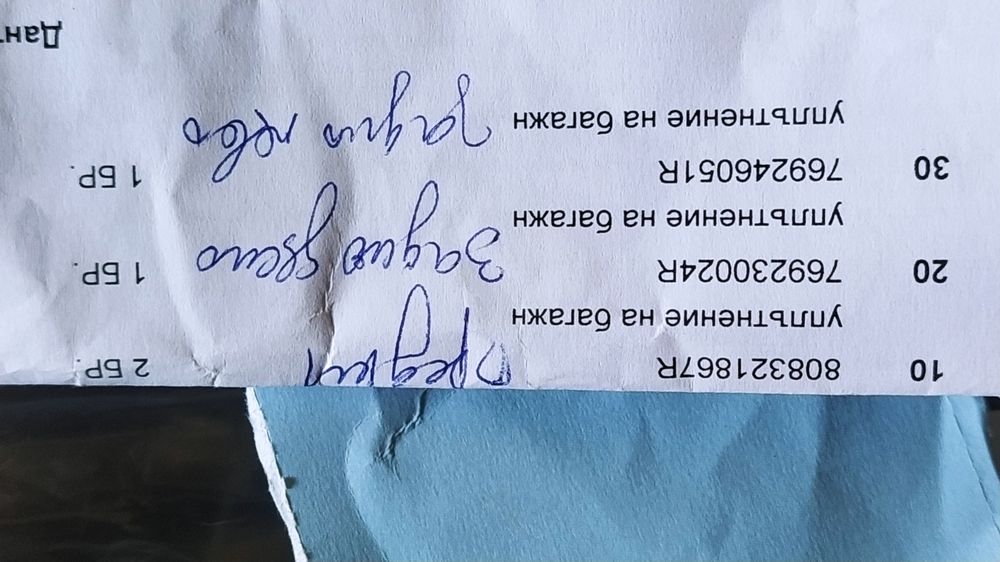 10 808321867R предни 2 БР.
уплътнение на багажн
20 769230024R задно дясно 1 БР.
уплътнение на багажн
30 769246051R 1 БР.
уплътнение на багажн задно ляво
Дан